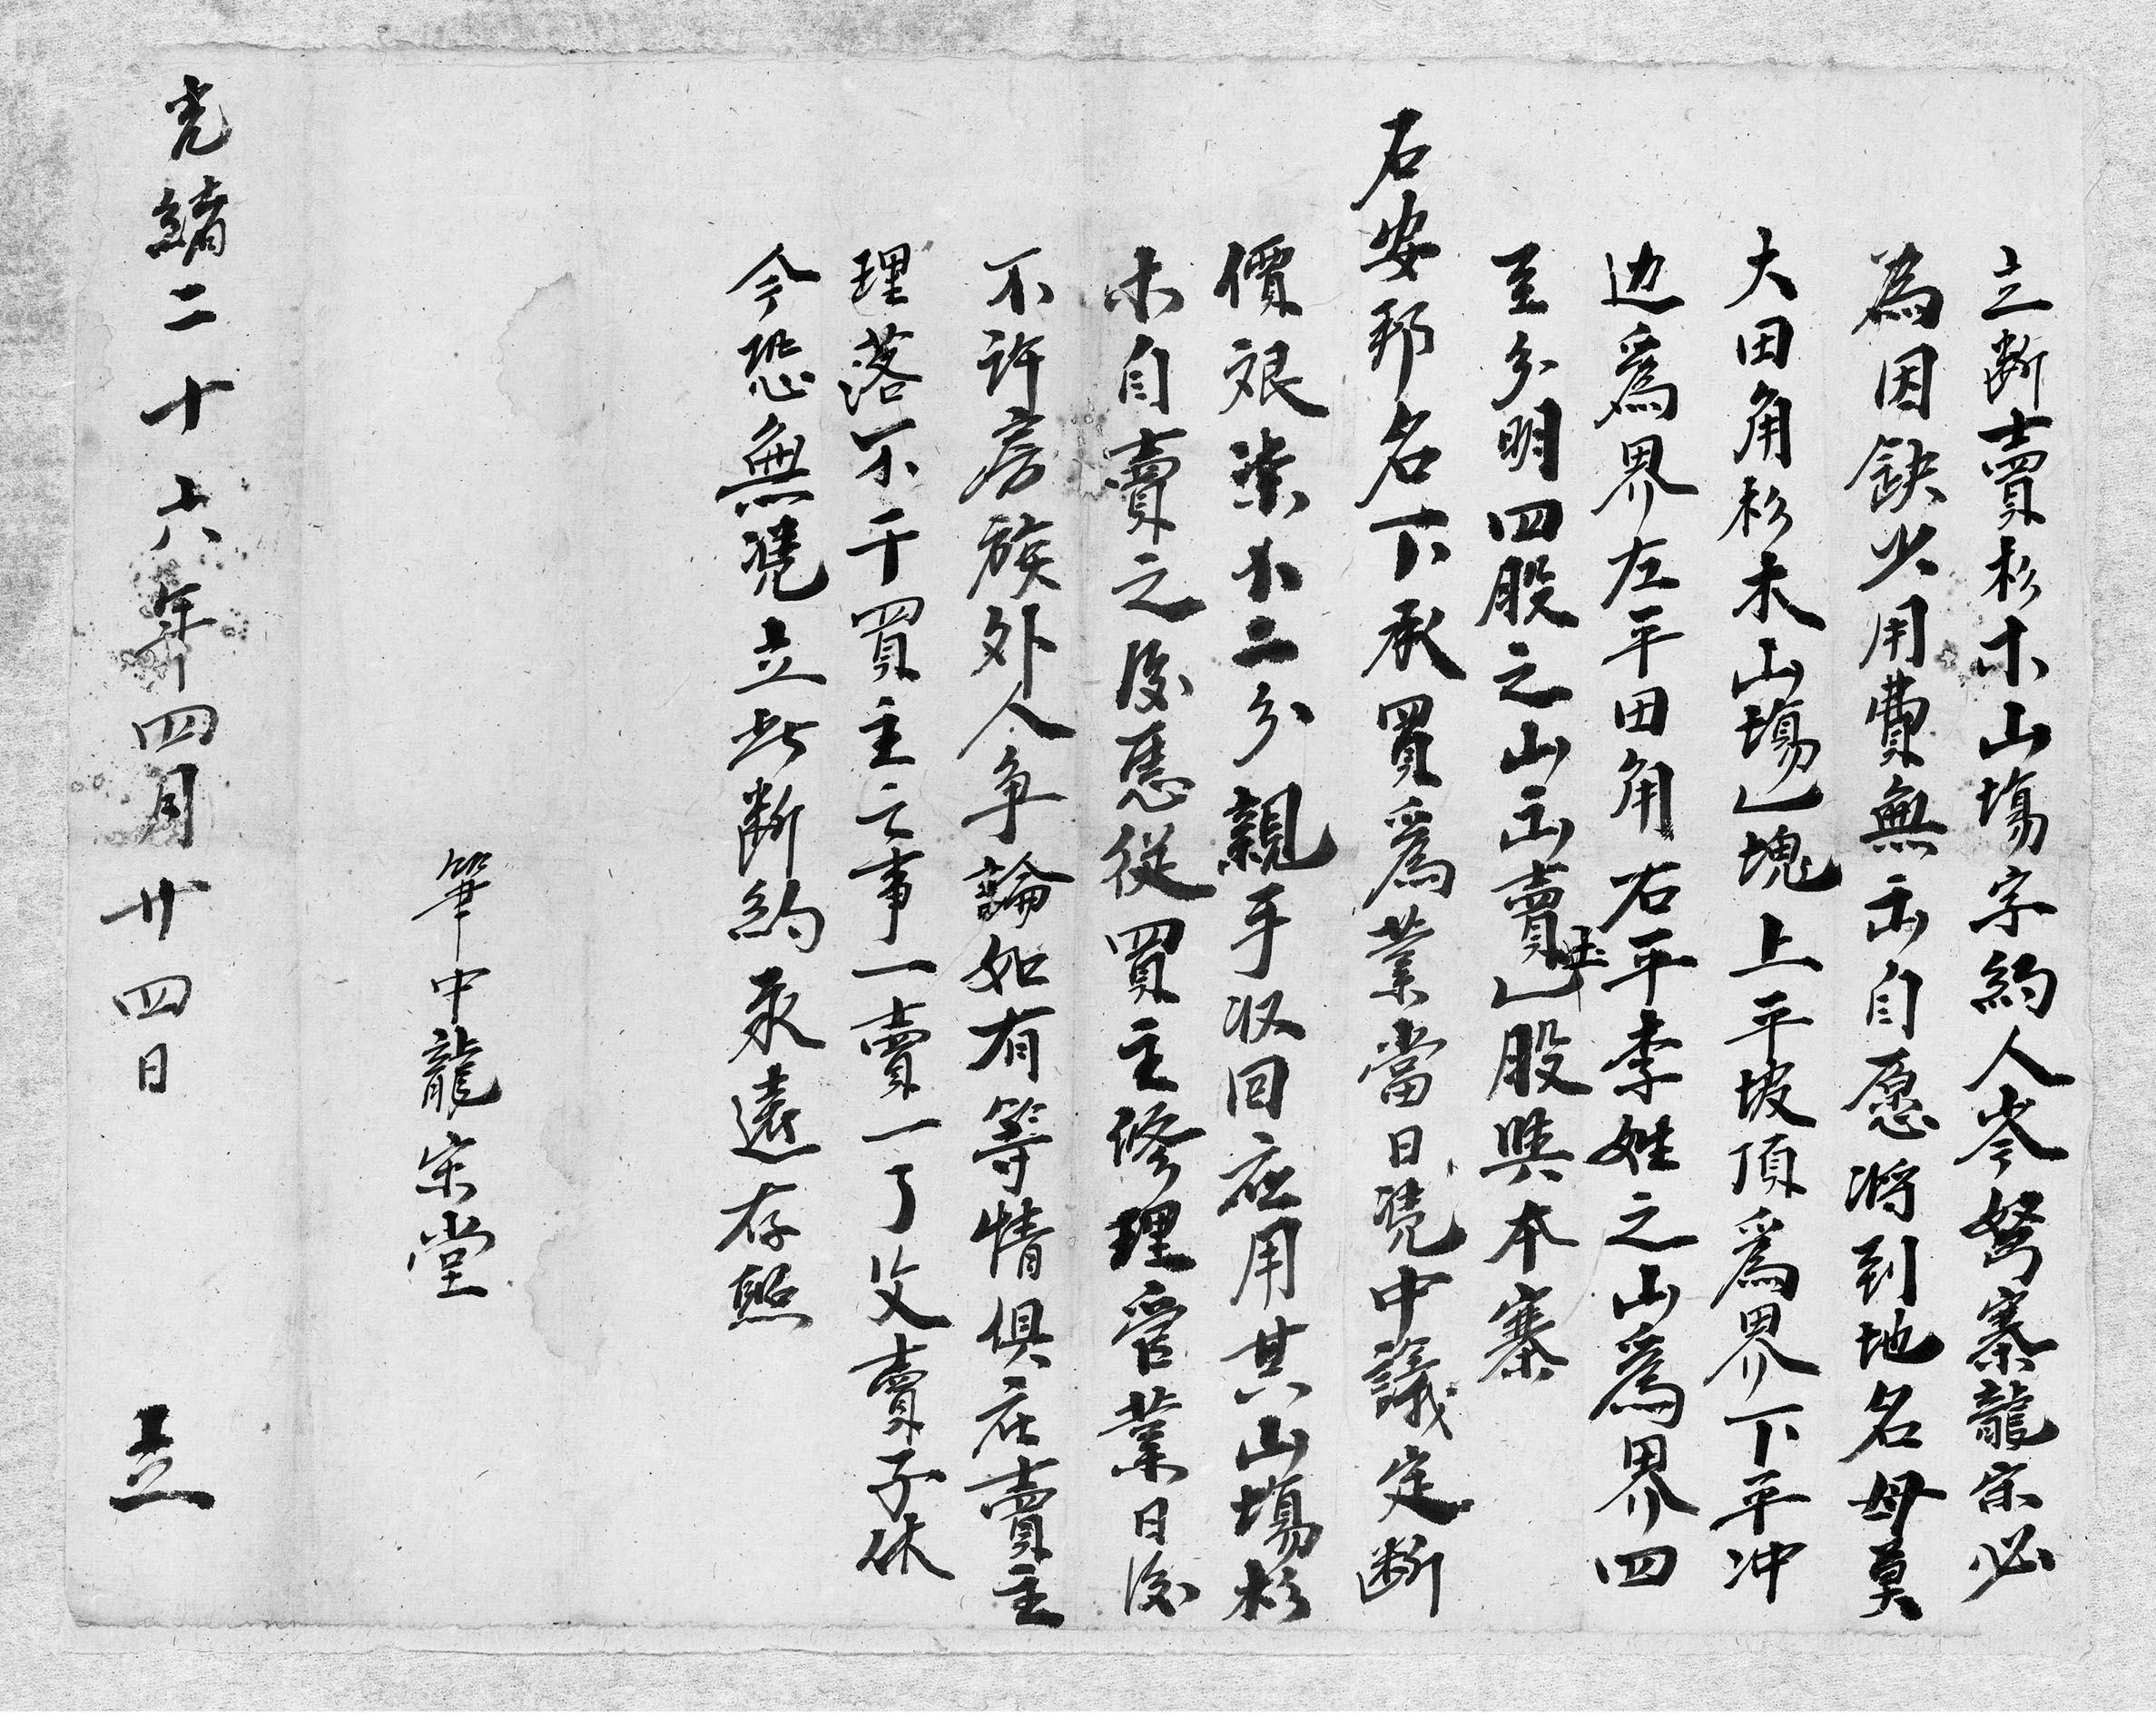 立断賣杉木山塲字約人岑努寨龍宗必
為因缺少用費無出自愿將到地名毋莫
大田角杉木山塲乚塊上平坡頂爲界下平冲
边爲界左平田角右平李姓之山爲界四
至分明四股之山出賣乚股與本寨
石安邦名下承買爲業當日凴中議定断
價艮柒卜二分親手收回应用其山塲杉
木自賣之後慿從買主修理管業日後
不許房族外人争論如有等情俱在賣主
理落不干買主之事一賣一了父賣子休
今恐無凴立此断約永遠存照
筆中龍宗堂
光緒二十六年四月廿四日 立